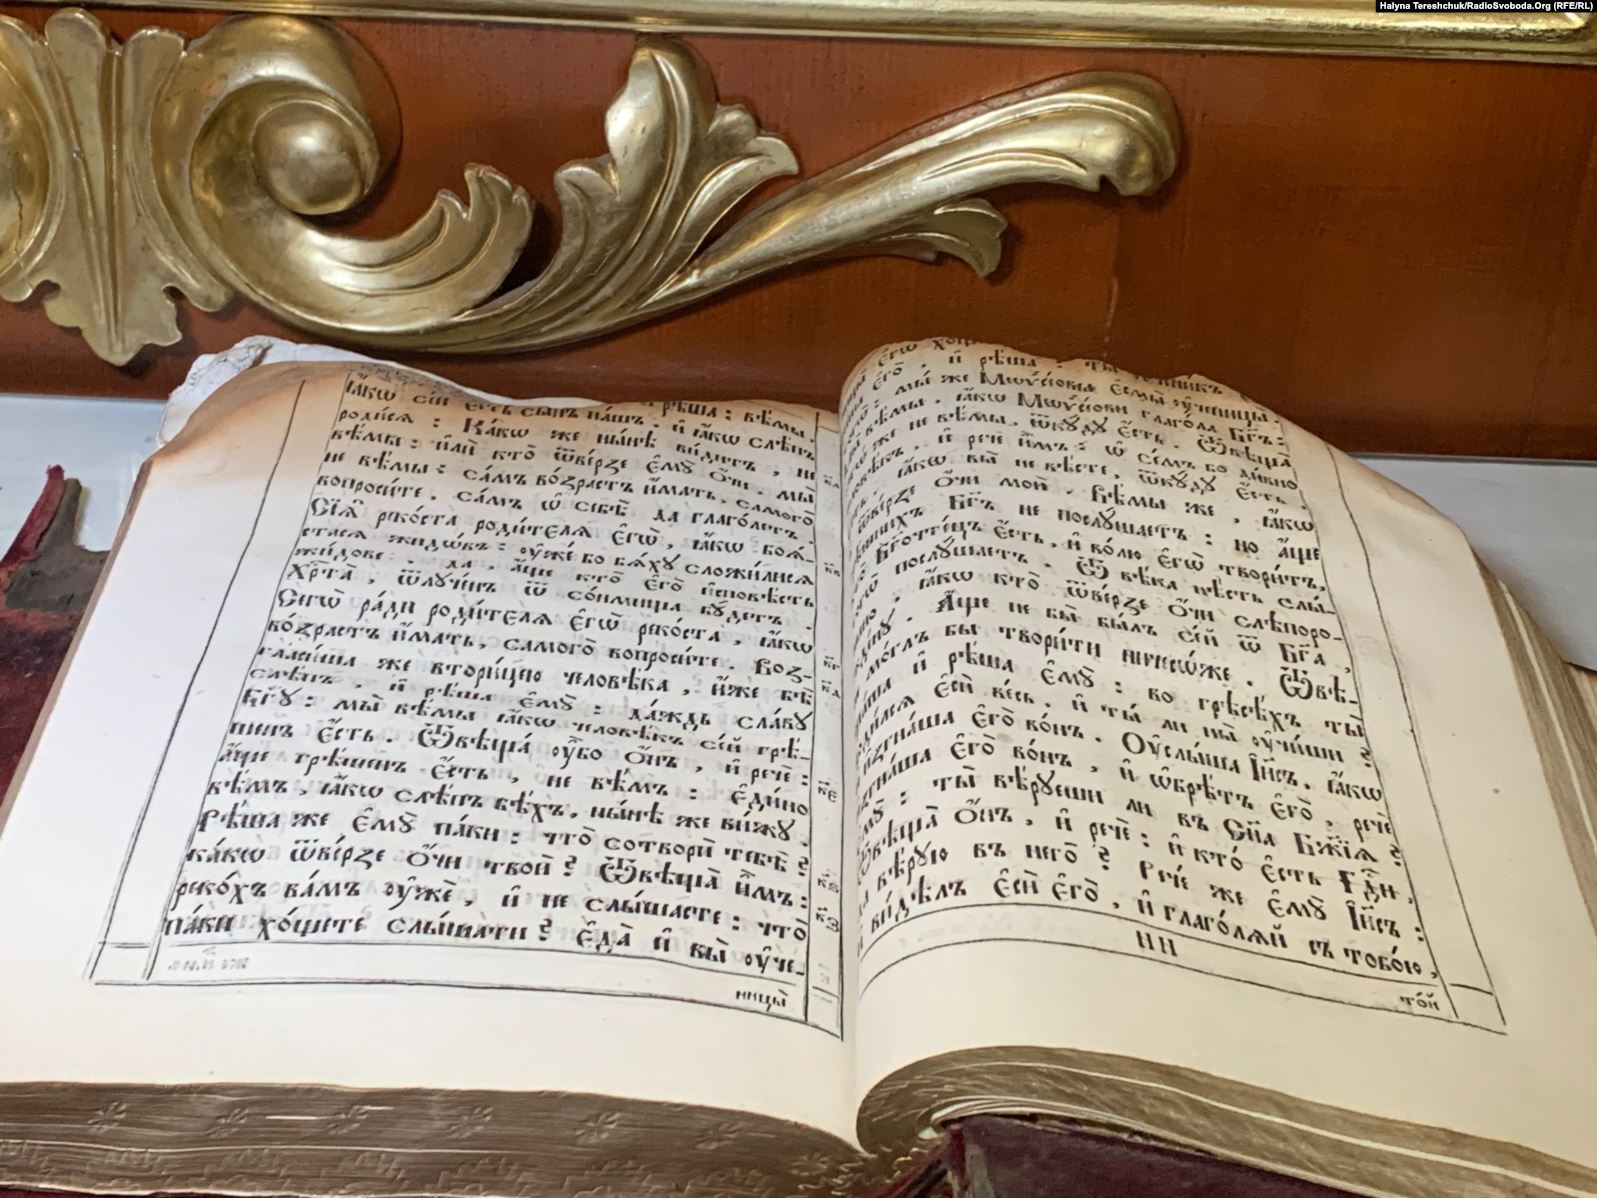 Halyna Tereshchuk/RadioSvoboda.Org (RFE/RL)
рѣ́ша : вѣ́мы,
ꙗ҆́кѡ се́й є҆́сть сы́нъ на́шъ, и҆ ꙗ҆́кѡ слѣ́пъ
роди́сѧ : Ка́кѡ же ны́нѣ ви́дитъ , не
вѣ́мы : и҆лѝ кто̀ ѿве́рзе є҆мꙋ̀ ѻ҆́чи , мы̀
не вѣ́мы : са́мъ во́зрастъ и҆́мать, самого̀
вопроси́те , са́мъ ѡ҆ себѣ̀ да глаго́летъ .
Сїѧ̑ реко́ста роди́телѧ є҆гѡ̀ , ꙗ҆́кѡ боѧ́-
стасѧ жидѡ́въ : ᲂу҆жѐ бо бѧ́хꙋ сложи́лисѧ
жи́дове , да , а҆́ще кто̀ є҆го̀ и҆сповѣ́сть
Хрⷭ҇та̀ , ѿлꙋче́нъ ѿ со́нмища бꙋ́детъ .
Сегѡ̀ ра́ди роди́телѧ є҆гѡ̀ реко́ста , ꙗ҆́кѡ
во́зрастъ и҆́мать, самого̀ вопроси́те . Воз-
гласи́ша же втори́цею человѣ́ка , и҆́же бѣ̀
слѣ́пъ , и҆ рѣ́ша є҆мꙋ̀ : да́ждь сла́вꙋ
Бг҃ꙋ : мы̀ вѣ́мы ꙗ҆́кѡ человѣ́къ се́й грѣ́-
шенъ є҆́сть . Ѿвѣща̀ ᲂу҆̀бо ѻ҆́нъ , и҆ речѐ :
а҆́ще грѣ́шенъ є҆́сть , не вѣ́мъ : є҆ди́но
вѣ́мъ , ꙗ҆́кѡ слѣ́пъ бѣ́хъ, ны́нѣ же ви́жꙋ .
Рѣ́ша же є҆мꙋ̀ па́ки : что̀ сотворѝ тебѣ̀ ?
ка́кѡ ѿве́рзе ѻ҆́чи твоѝ ? Ѿвѣща̀ и҆̀мъ :
реко́хъ ва́мъ ᲂу҆жѐ , и҆ не слы́шасте : что̀
па́ки хо́щете слы́шати ? є҆да̀ и҆ вы̀ ᲂу҆че-
ницы̀
є҆гѡ̀
є҆го̀ , и҆ рѣ́ша : ты̀ ᲂу҆чени́къ
мы́ же Мѡѷсе́ѡвы є҆смы̀ ᲂу҆ченицы̀ .
вѣ́мы , ꙗ҆́кѡ Мѡѷсе́ови глаго́ла Бг҃ъ :
же не вѣ́мы, ѿкꙋ́дꙋ є҆́сть . Ѿвѣща̀
и҆ речѐ и҆̀мъ : ѡ҆ се́мъ бо ди́вно
ꙗ҆́кѡ вы̀ не вѣ́сте, ѿкꙋ́дꙋ є҆́сть .
ѿве́рзе ѻ҆́чи моѝ . Вѣ́мы же , ꙗ҆́кѡ
Бг҃ъ не послꙋ́шаетъ : но а҆́ще
Бг҃очте́цъ є҆́сть , и҆ во́лю є҆гѡ̀ твори́тъ,
послꙋ́шаетъ . Ѿ вѣ́ка нѣ́сть слы́-
ꙗ҆́кѡ кто̀ ѿве́рзе ѻ҆́чи слѣпоро-
А҆́ще не бы̀ бы́лъ се́й ѿ Бг҃а ,
мо́глъ бы твори́ти ничесѡ́же . Ѿвѣ-
и҆ рѣ́ша є҆мꙋ̀ : во грѣсѣ́хъ ты̀
є҆сѝ ве́сь , и҆ ты́ ли ны̀ ᲂу҆чи́ши ?
и҆згна́ша є҆го̀ во́нъ . Оу҆слы́ша Іи҃съ, ꙗ҆́кѡ
є҆го̀ во́нъ , и҆ ѡ҆брѣ́тъ є҆го̀ , речѐ
ты̀ вѣ́рꙋеши ли въ Сн҃а Бж҃їѧ ?
ѻ҆́нъ , и҆ речѐ : и҆ кто́ є҆сть Гдⷭ҇и ,
вѣ́рꙋю въ него̀ ? Рече́ же є҆мꙋ̀ Іи҃съ :
ви́дѣлъ є҆сѝ є҆го̀ , и҆ глаго́лѧй съ тобо́ю ,
то́й